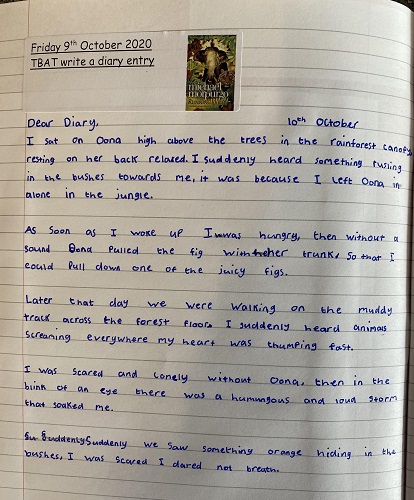 Friday 9th October 2020
TBAT write a diary entry
michael
morpurgo
Dear Diary,
10th October
I sat on Oona high above the trees in the rainforest canopy
resting on her back relaxed. I suddenly heard something rusling
in the bushes towards me, it was because I left Oona in
alone in the jungle.
As soon as I woke up I was hungry, then without a
sound Oona pulled the fig with her trunk, so that I
could pull down one of the juicy figs.
Later that day we were walking on the muddy
track across the forest floor. I suddenly heard animals
screaming everywhere my heart was thumping fast.
I was scared and lonely without Oona, then in the
blink of an eye there was a humungous and loud storm
that soaked me.
Su Suddenly Suddenly we saw something orange hiding in the
bushes, I was scared I dared not breath.